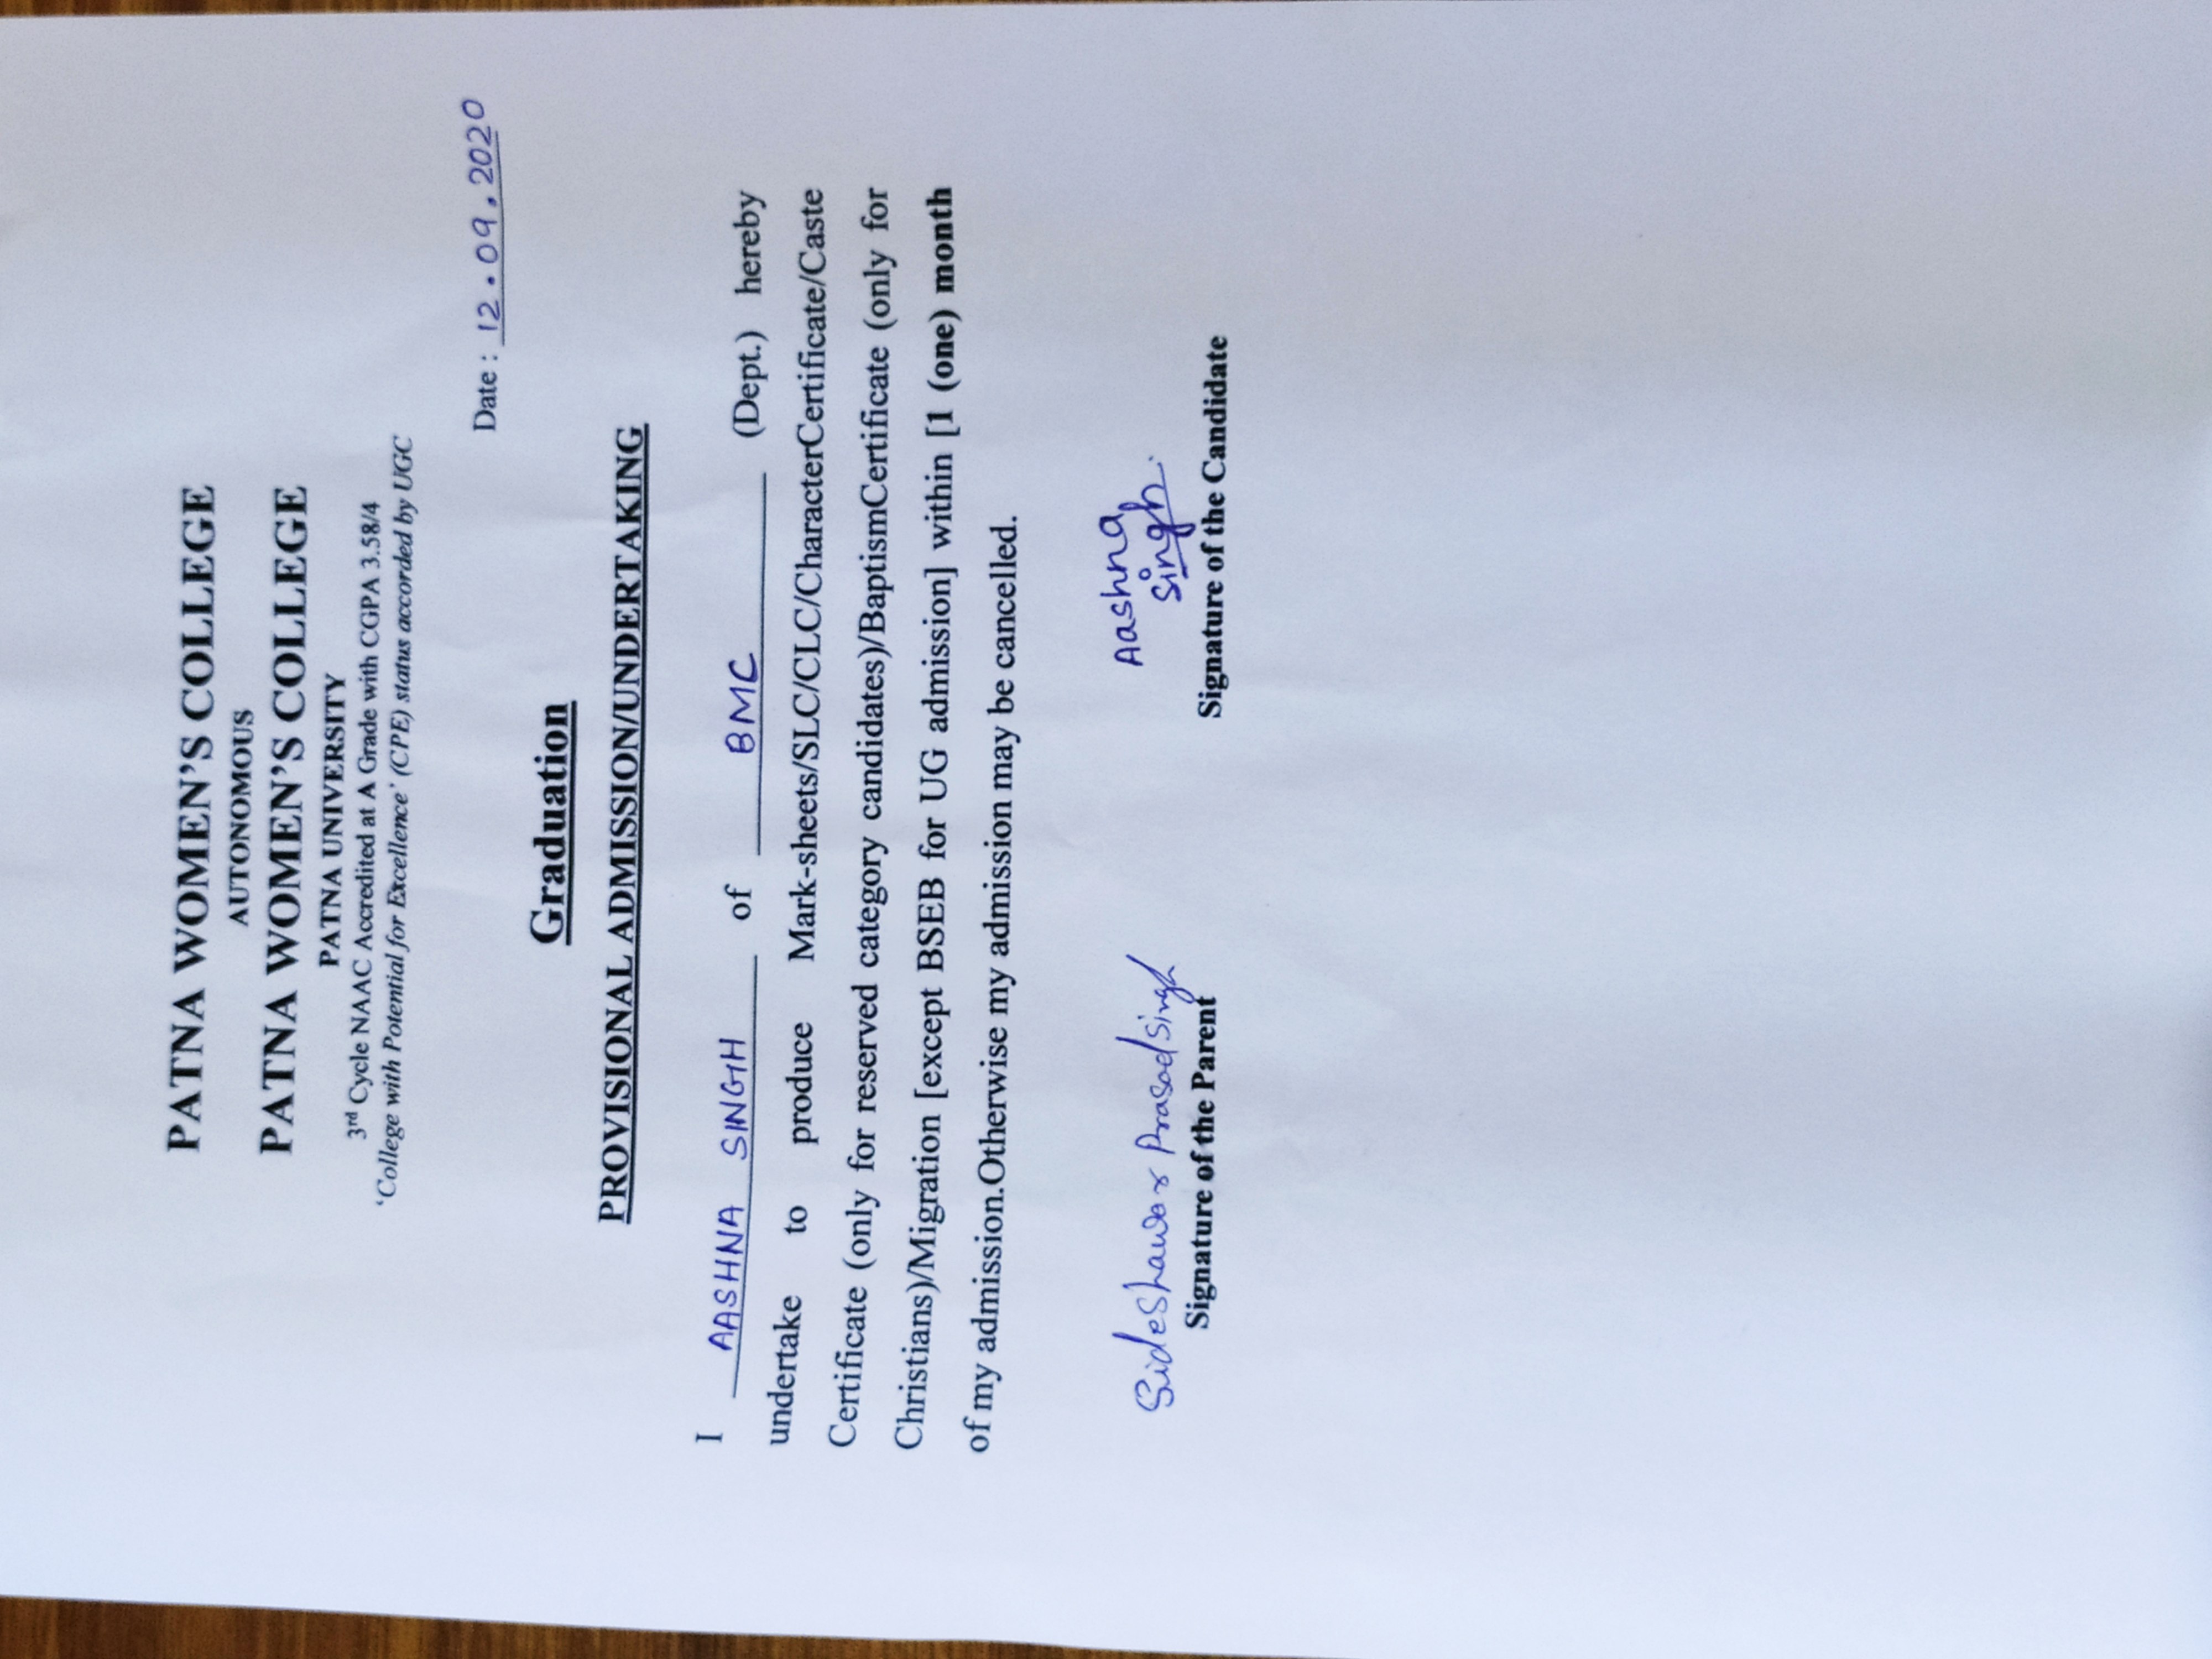 PATNA WOMEN'S COLLEGE
AUTONOMOUS
PATNA WOMEN'S COLLEGE
PATNA UNIVERSITY
3rd Cycle NAAC Accredited at A Grade with CGPA 3.58/4
'College with Potential for Excellence' (CPE) status accorded by UGC
Date : 12.09.2020
Graduation
PROVISIONAL ADMISSION/UNDERTAKING
I AASHNA SINGH of BMC (Dept.) hereby
undertake to produce Mark-sheets/SLC/CLC/CharacterCertificate/Caste
Certificate (only for reserved category candidates)/BaptismCertificate (only for
Christians)/Migration [except BSEB for UG admission] within [1 (one) month
of my admission.Otherwise my admission may be cancelled.
Sideshawar Prasad Singh
Aashna
Singh.
Signature of the Parent
Signature of the Candidate